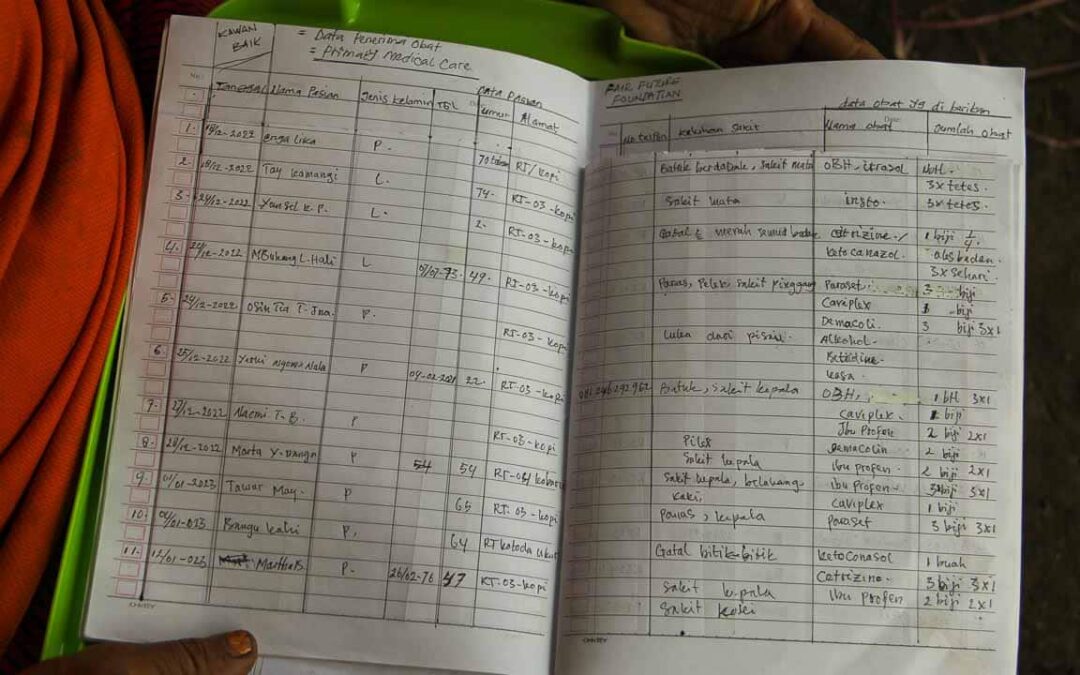 KAWAN
BAIK
= Data Penerima Obat
= Primary Medical Care
Data Pasien
No: Tanggal Nama Pasien Jenis Kelamin TGL Umur Alamat
1. 18/12-2022 P. 70 tahun RT/kopi
2. 18/12-2022 Tay kamangi L. 74. RT-03-kopi
3. 24/12-2022 L. 2. RT-03-kopi
4. 24/12-2022 MBukang L. Hali L 07/07-73. 49. RT-03-kopi
5. 24/12-2022 P. RT-03-kopi
6 25/12-2022 P 04-02-2021 22. RT-03-kopi
7. 27/12-2022 Naomi T. B. P RT-03-kopi
8. 28/12-2022 Marta Y. P 54 54
9. 01/01-2023 Tawar May. P 65 RT-03-kopi
10. /01-023 kahi P. 64 RT
11. 12/01-023 P. 26/02-76 47 RT-03-kopi
CHARTY
FAIR FUTURE
FOUNDATION
data obat yg di berikan
No Date:
No telfon keluhan sakit Nama obat Jumlah obat
Batuk berdahak, sakit mata OBH, 1 btl.
3x tetes.
Sakit mata insto. 3x tetes.
Gatal merah semua badan 1 biji 1/4.
ketocanazol.
3x sehari.
Panas, Pilek, sakit pinggang Paraset 3 biji
Caviplex 1 biji
Demacoli. 3 biji 3x1
Luka dari pisau. Alkohol.
Betidine.
kasa.
081 246 292 962 Batuk, sakit kepala OBH, 1 btl 3x1
caviplex. biji
Ibu Profen 2 biji 2x1
Pilek Demacolin 2 biji
Sakit kepala ibu profen 2 biji 2x1
Sakit kepala, belakang ibu profen 3 biji 3x1
kaki, caviplex 1 biji
Panas, kepala Paraset 3 biji 3x1
Gatal bitik-bitik ketoconasol 1 buah
Cetrizine. 3 biji 3x1
Sakit kepala ibu Profen 2 biji 2x1
Sakit kaki
CHARTY